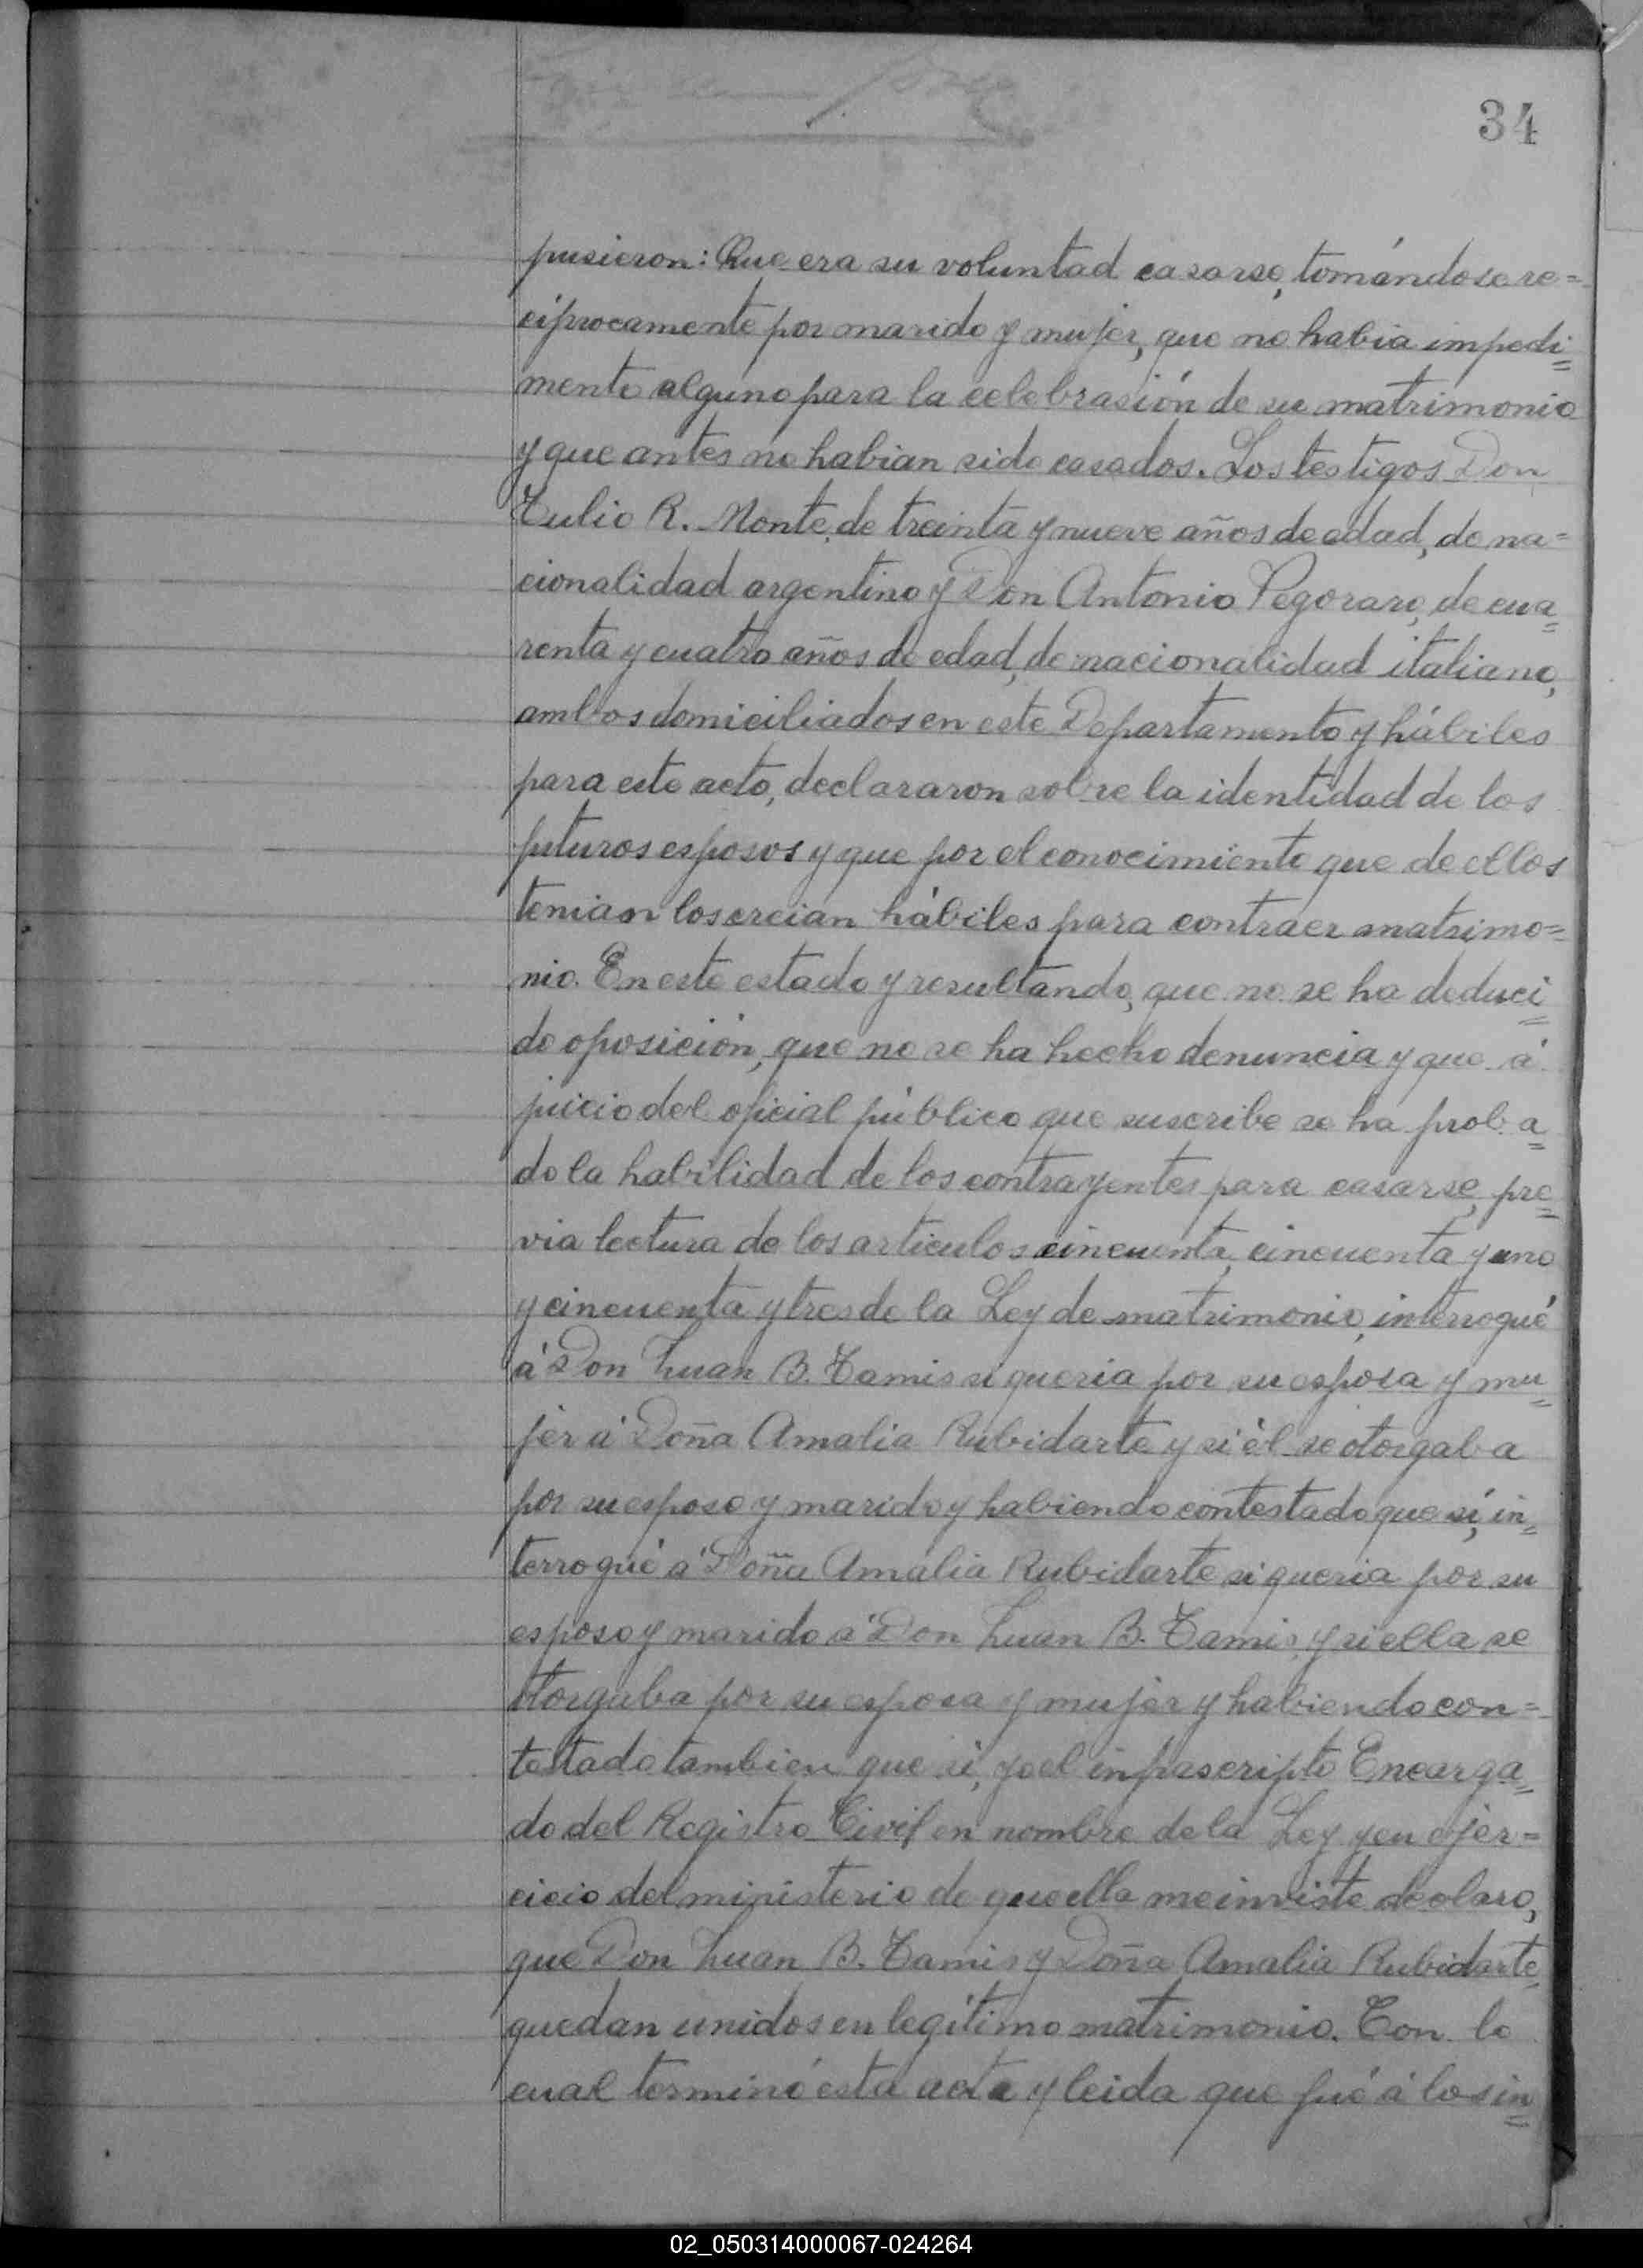 34
pusieron: Que era su voluntad casarse, tomándose re=
cíprocamente por marido y mujer, que no habia impedi=
mento alguno para la celebrasión de su matrimonio
y que antes no habian sido casados. Los testigos Don
Tulio R. Monte, de treinta y nueve años de edad, de na=
cionalidad argentino y Don Antonio Pegoraro, de cua=
renta y cuatro años de edad, de nacionalidad italiano,
ambos domiciliados en este Departamento y hábiles
para este acto, declararon sobre la identidad de los
futuros esposos y que por el conocimiento que de ellos
tenian los creian hábiles para contraer matrimo=
nio. En este estado y resultando, que no se ha deduci=
do oposición, que no se ha hecho denuncia y que á
juicio del oficial público que suscribe se ha proba=
do la habilidad de los contrayentes para casarse, pre=
via lectura de los articulos cincuenta, cincuenta y uno
y cincuenta y tres de la Ley de matrimonio, interrogué
á Don Juan B. Tamis si queria por su esposa y mu=
jer á Doña Amalia Rubidarte y si él se otorgaba
por su esposo y marido y habiendo contestado que sí, in=
terrogué á Doña Amalia Rubidarte si queria por su
esposo y marido á Don Juan B. Tamis, y si ella se
otorgaba por su esposa y mujer y habiendo con=
testado tambien que si, yo el infrascripto Encarga=
do del Registro Civil en nombre de la Ley y en ejer=
cicio del ministerio de que ella me inviste declaro,
que Don Juan B. Tamis y Doña Amalia Rubidarte
quedan unidos en legítimo matrimonio. Con lo
cual terminó esta acta y leida que fué á los in=
02_050314000067-024264